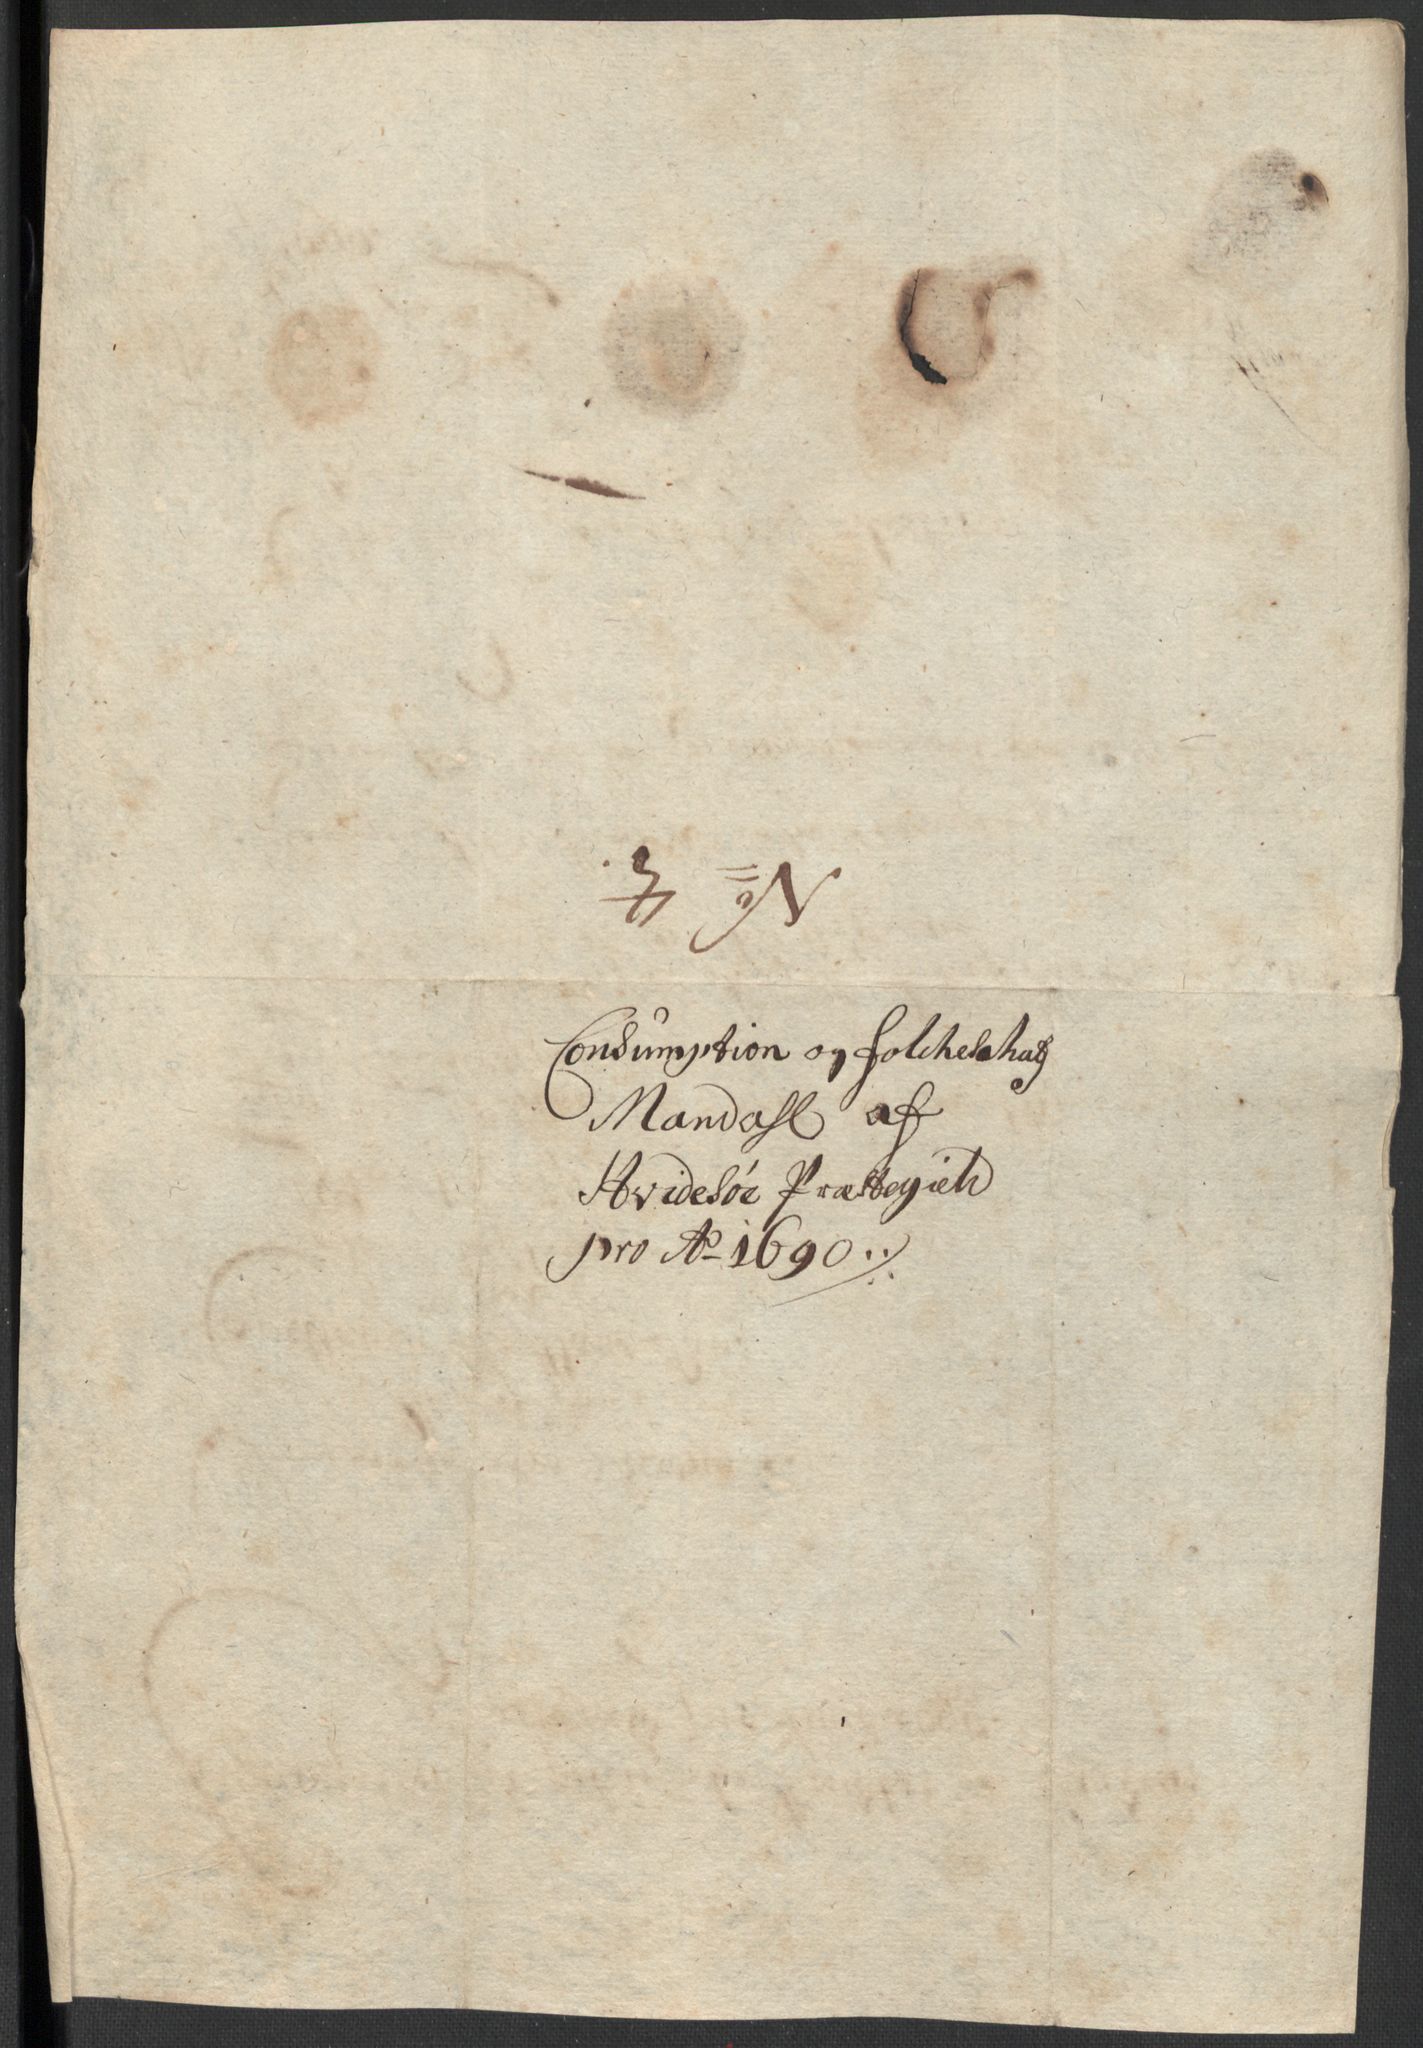 No 4
Consumption og folcheschatz
Mandall af
Hvidesöe Præstegield
pro Ao 1690